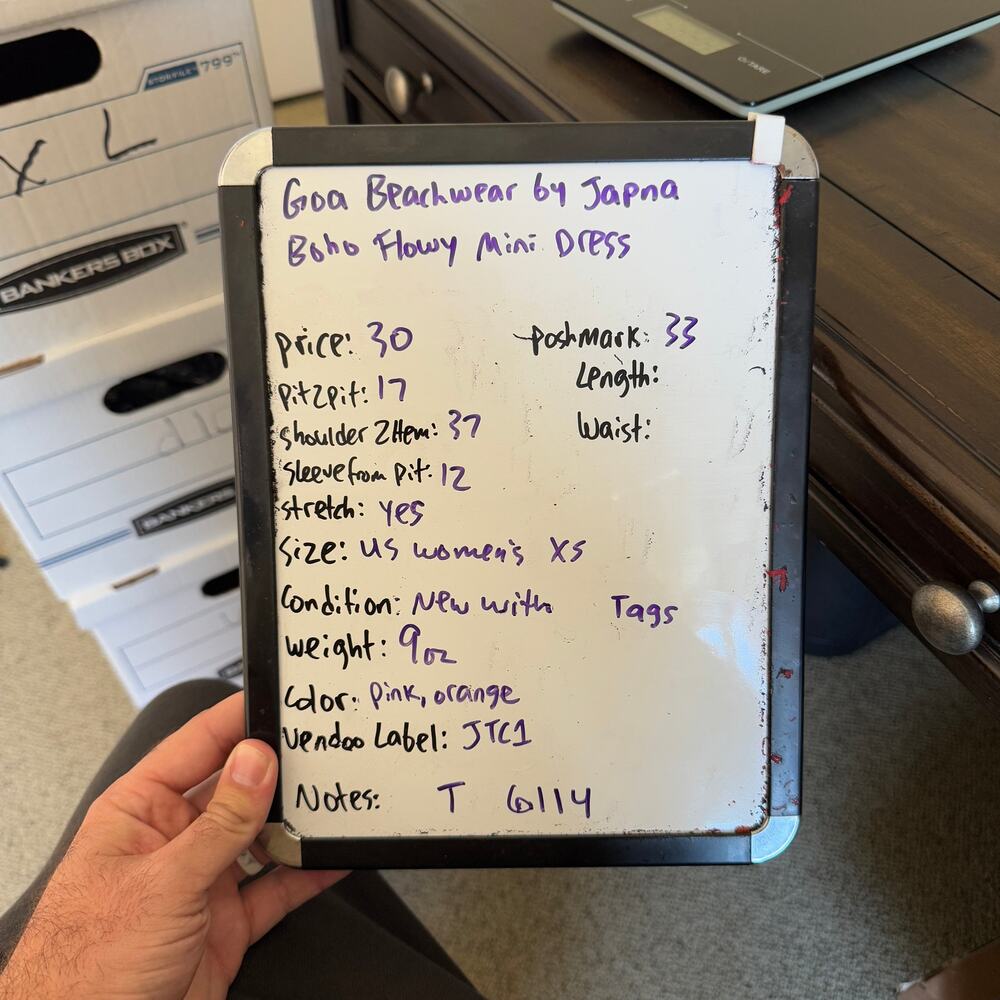 STORFILE 799™
X L
BANKERS BOX
O/TARE
Goa Beachwear by Japna
Boho Flowy Mini Dress
price: 30
poshmark: 33
Length:
pit2pit: 17
Waist:
shoulder 2 Hem: 37
sleeve from pit: 12
stretch: yes
Size: US women's XS
Condition: New with Tags
weight: 9oz
Color: Pink, orange
Vendoo Label: JTC1
Notes: T 6114
BANKERS